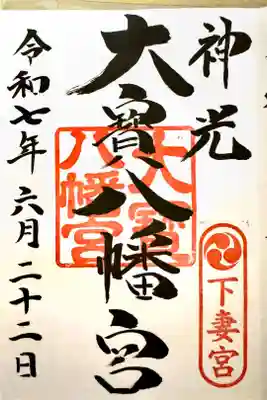 神光
大寳八幡宮
大寳八幡宮
下妻宮
令和七年六月二十二日